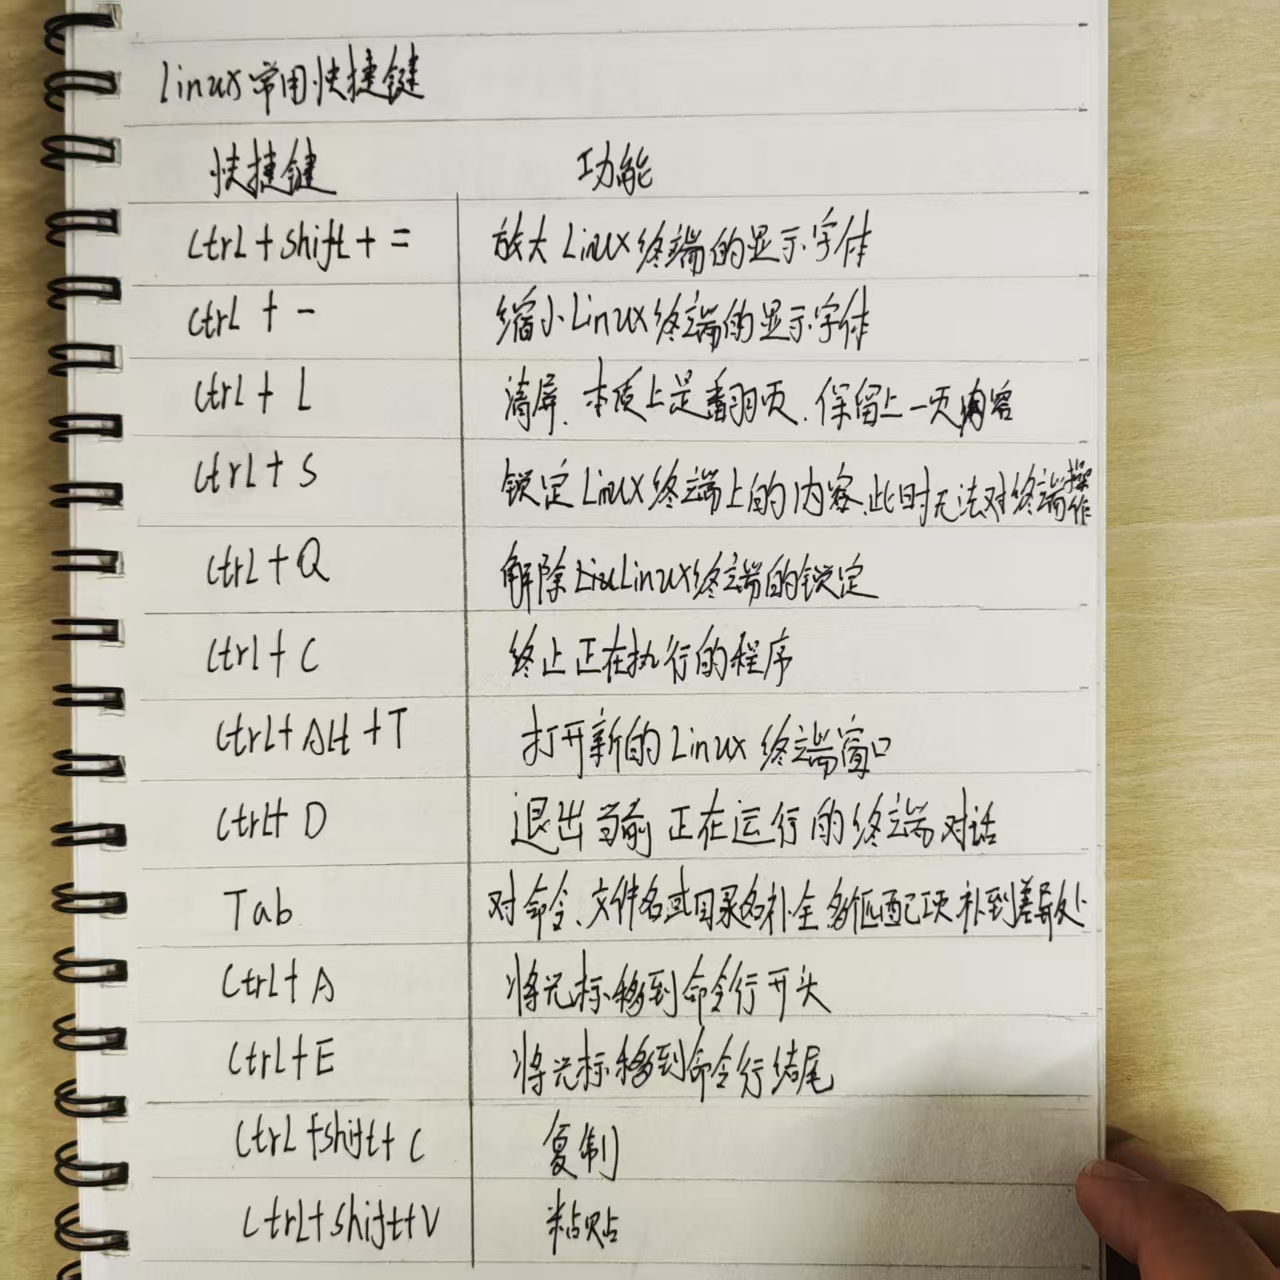 Linux常用快捷键
快捷键 功能
Ctrl+shift+= 放大Linux终端的显示字体
Ctrl+- 缩小Linux终端的显示字体
Ctrl+L 清屏、本质上是翻页、保留上一页内容
Ctrl+S 锁定Linux终端上的内容,此时无法对终端操作
Ctrl+Q 解除LiuLinux终端的锁定
Ctrl+C 终止正在执行的程序
Ctrl+Alt+T 打开新的Linux终端窗口
Ctrl+D 退出当前正在运行的终端对话
Tab 对命令、文件名或目录名补全,多个匹配项,补到差异处
Ctrl+A 将光标移到命令行开头
Ctrl+E 将光标移到命令行结尾
Ctrl+shift+C 复制
Ctrl+shift+V 粘贴